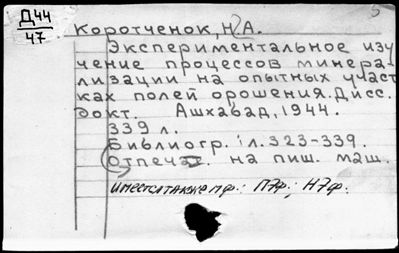 Д44
47
5
Коротченок, Н.А.
Экспериментальное изу
чение процессов минера-
лизации на опытных участ
ках полей орошения. Дисс.
докт. Ашхабад, 1944.
339 л.
Библиогр. л. 323-339.
Отпечат. на пиш. маш.
Имеется также мф.: П7ф; Н7ф.